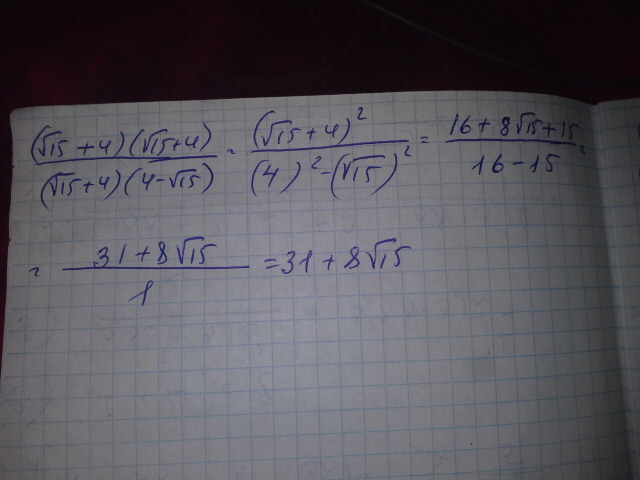 (√15 + 4)(√15 + 4) / (√15 + 4)(4 - √15) = (√15 + 4)² / (4)² - (√15)² = 16 + 8√15 + 15 / 16 - 15 =
= 31 + 8√15 / 1 = 31 + 8√15